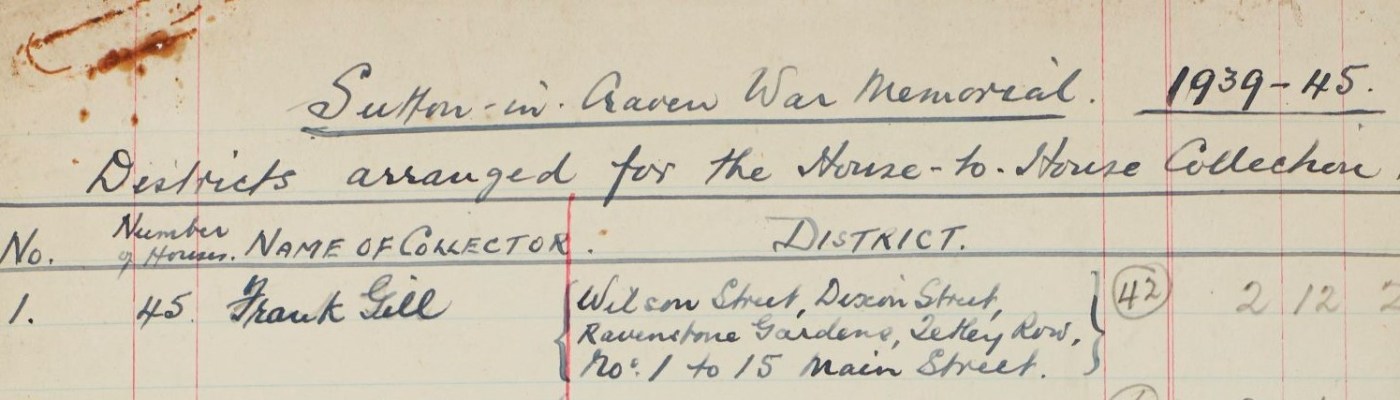 Sutton-in-Craven War Memorial. 1939-45.
Districts arranged for the House-to-House Collection.
No. Number of Houses. NAME OF COLLECTOR. DISTRICT.
1. 45. Frank Gill
Wilson Street, Dixon Street, 42 2 12 2
Ravenstone Gardens, Tetley Row,
Nos. 1 to 15 Main Street.